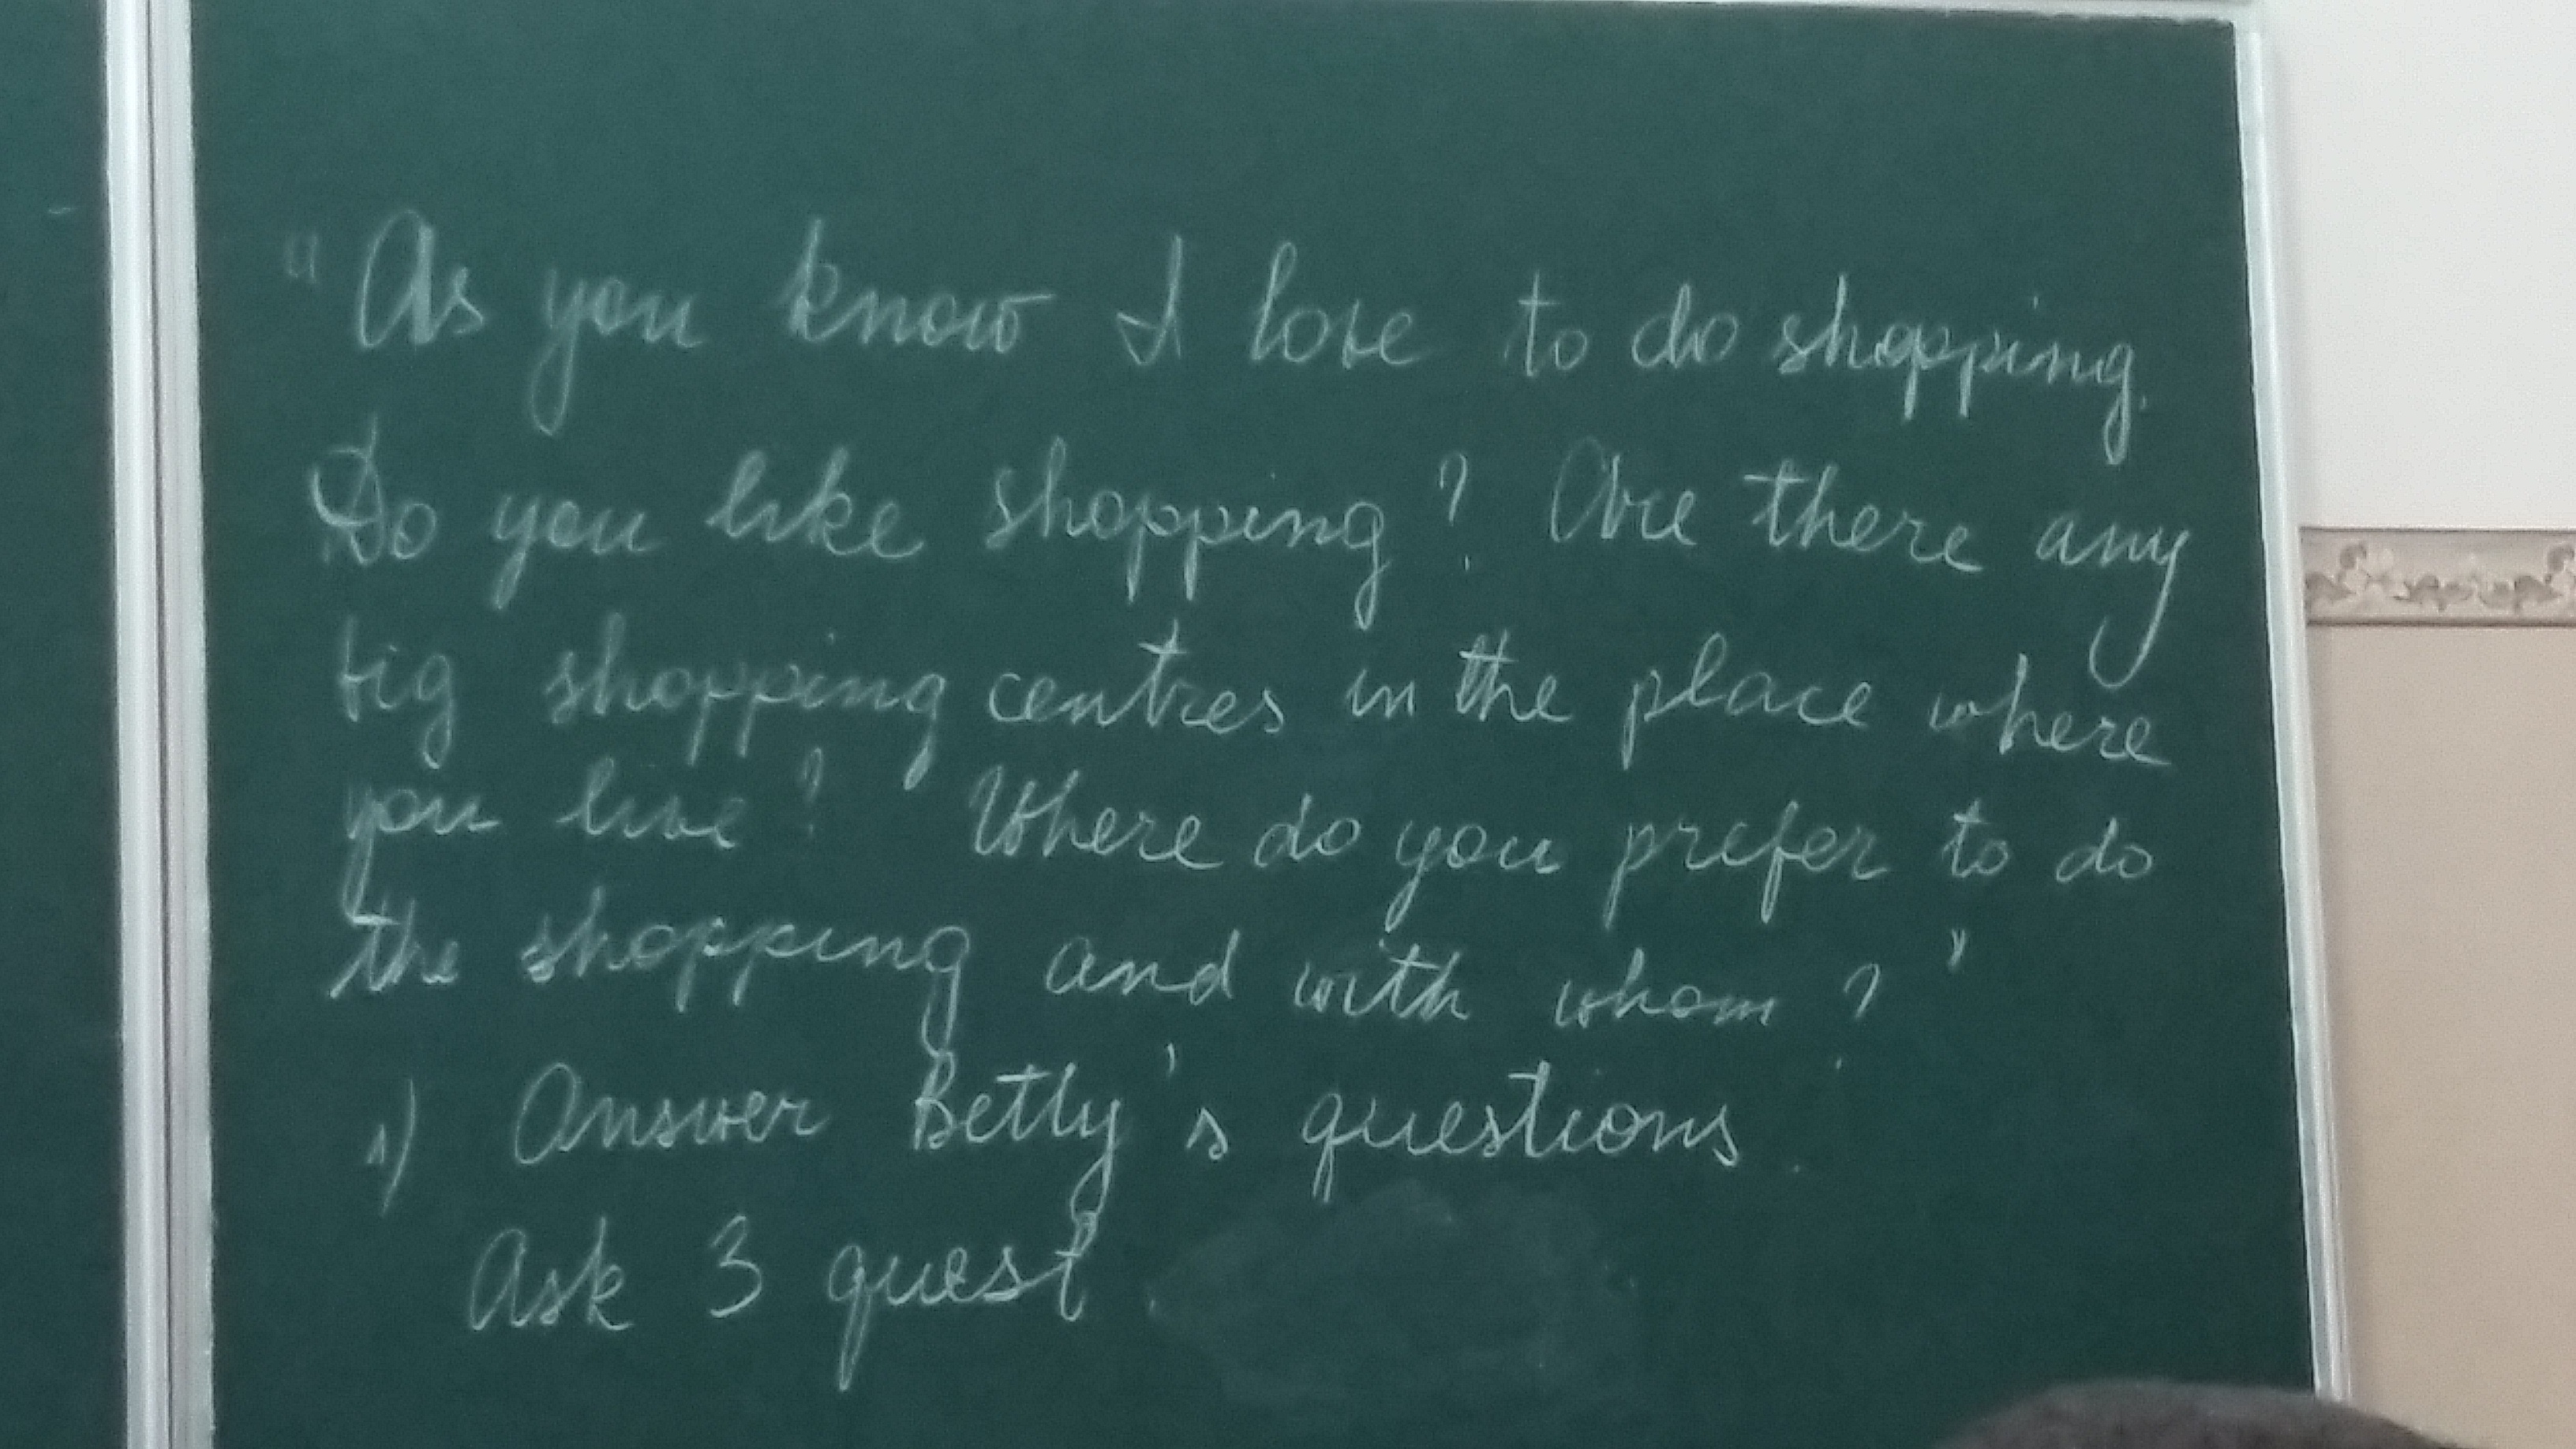 "As you know I love to do shopping.
Do you like shopping? Are there any
big shopping centres in the place where
you live? Where do you prefer to do
the shopping and with whom?"
1) Answer Betty's questions.
Ask 3 quest.